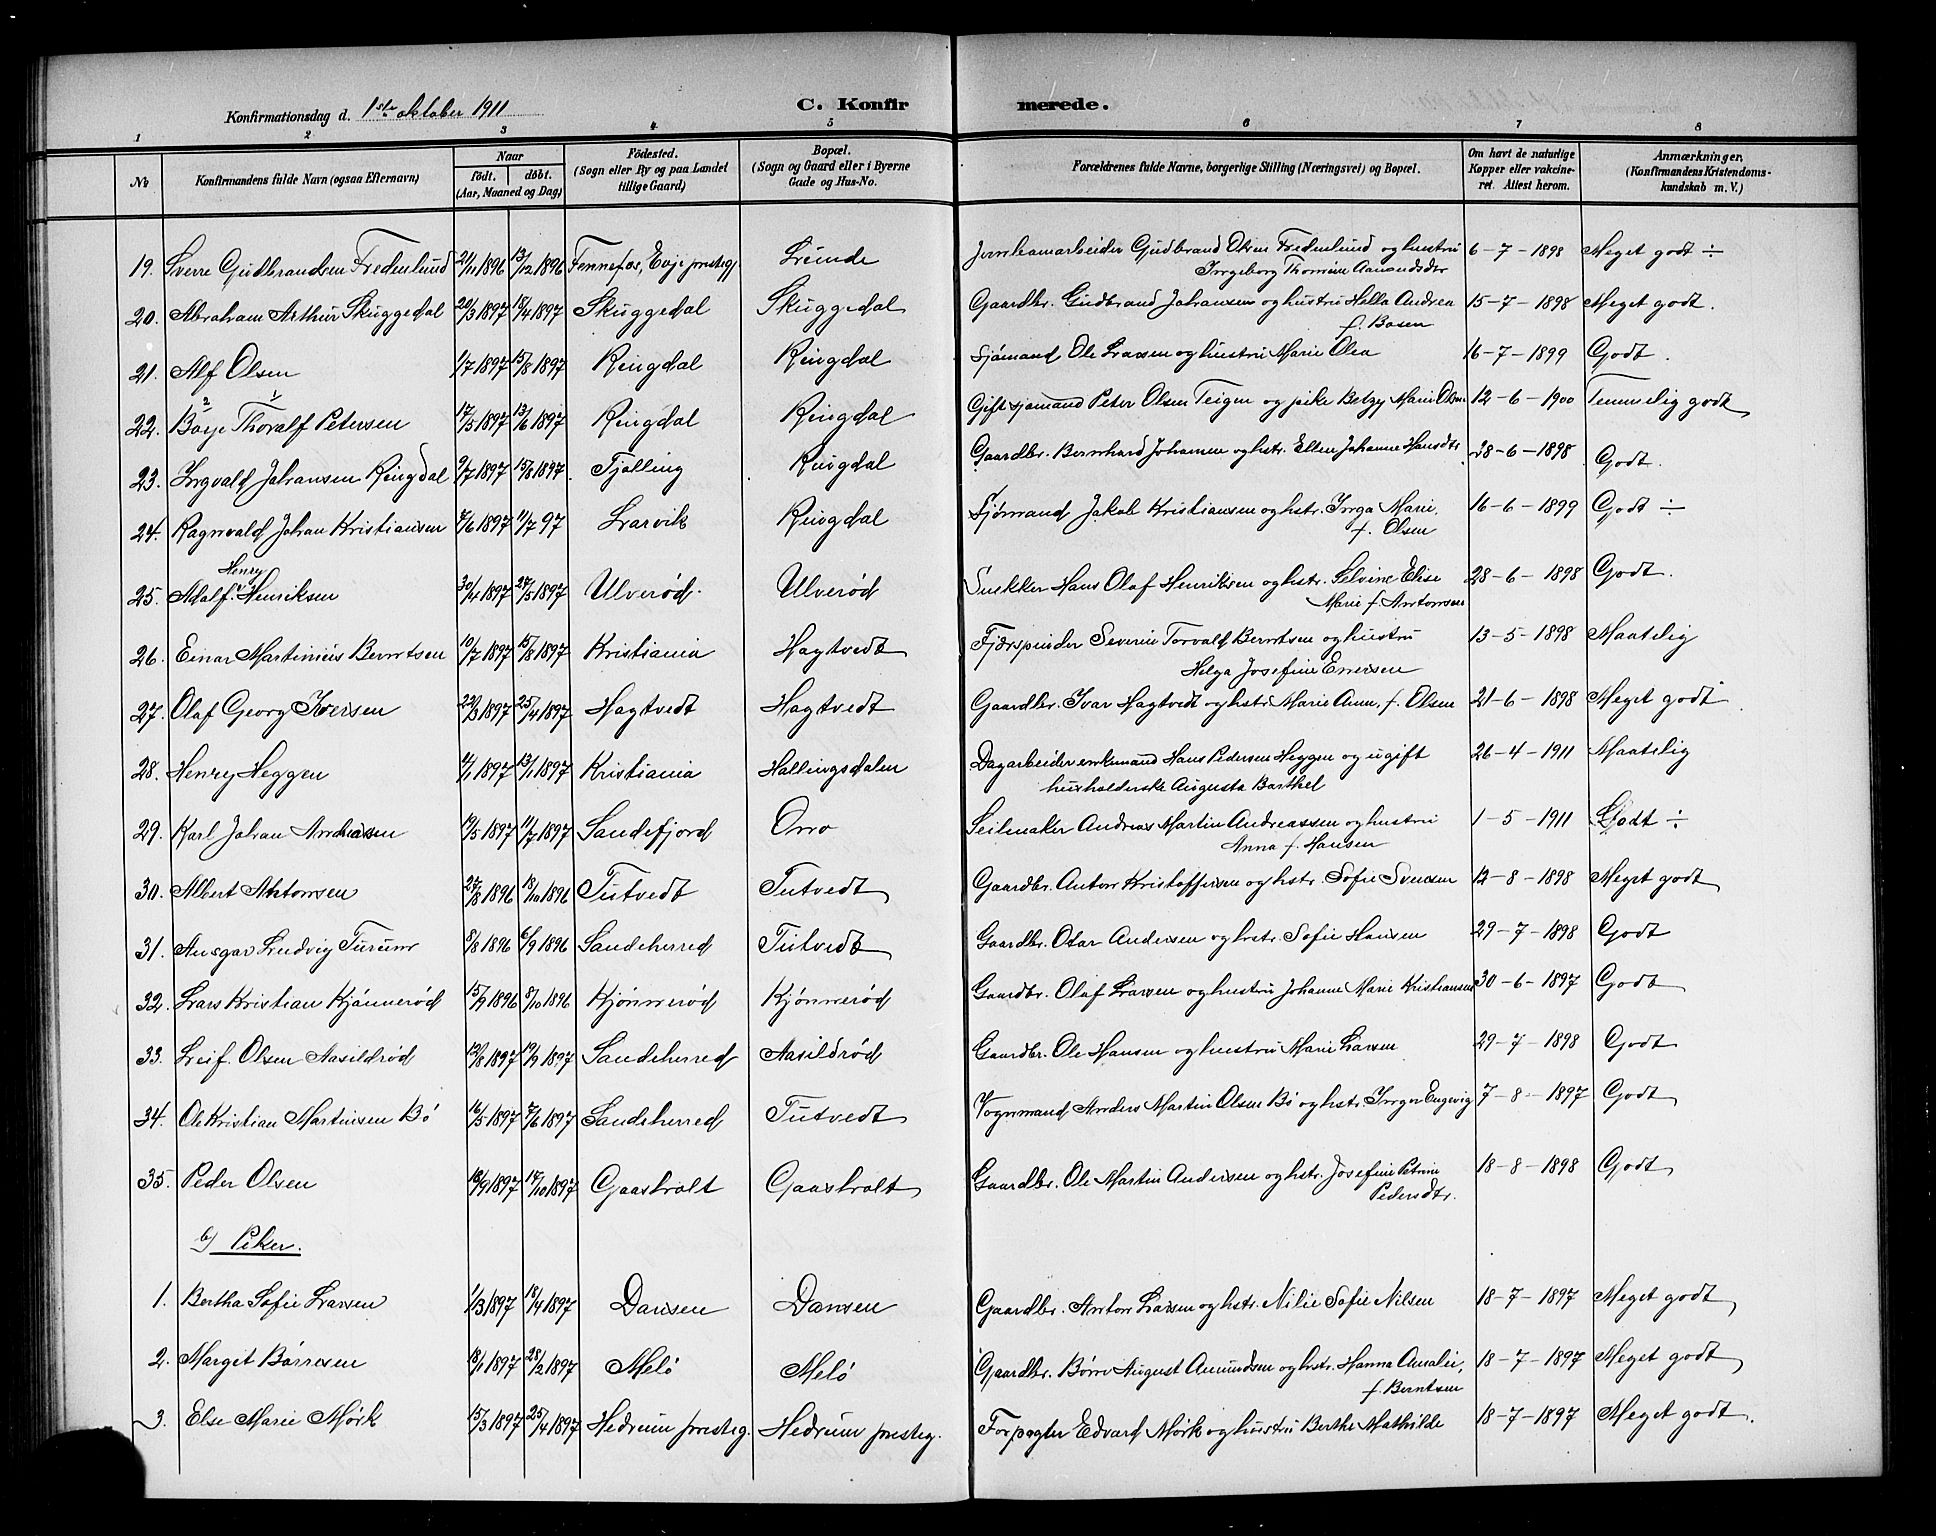 Konfirmationsdag d. 1ste oktober 1911
C. Konfirmerede.
1 2 3 4 5 6 7 8
No. | Konfirmandens fulde Navn (ogsaa Efternavn) | Naar födt. döbt. (Aar, Maaned og Dag) | Födested. (Sogn eller By og paa Landet tillige Gaard) | Bopæl. (Sogn og Gaard eller i Byerne Gade og Hus-No. | Forældrenes fulde Navne, borgerlige Stilling (Næringsvei) og Bopæl. | Om havt de naturlige Kopper eller vakcineret. Attest herom. | Anmærkninger. (Konfirmandens Kristendomskundskab m. V.)
19. Sverre Gudbrandsen Fredenlund 21/11 1896 13/12 1896 Fennefos, Evje prestegj Lunde Jernbanearbeider Gudbrand Olsen Fredenlund og hustru 6-7-1898 Meget godt ÷
Ingeborg Thomine Aanundsdtr
20. Abraham Arthur Skuggedal 20/3 1897 18/4 1897 Skuggedal Skuggedal Gaardbr. Gudbrand Johansen og hustru Hella Andrea 15-7-1898 Meget godt.
f. Basen
21. Alf Olsen 1/7 1897 15/8 1897 Ringdal Ringdal Sjömand Ole Larsen og hustru Marie Olea 16-7-1899 Godt.
2 1
22. Börje Thoralf Petersen 17/5 1897 13/6 1897 Ringdal Ringdal Gift sjömand Peter Olsen Teigen og pike Betzy Marie Olsen 12-6-1900 Temmelig godt
23. Ingvald Johansen Ringdal 9/7 1897 15/8 1897 Tjølling Ringdal Gaardbr. Bernhard Johansen og hstr. Ellen Johanne Hansdtr 28-6-1898 Godt.
24. Ragnvald Johan Kristiansen 7/6 1897 11/7 97 Larvik Ringdal Sjømand Jakob Kristiansen og hstr. Inga Marie, 16-6-1899 Godt ÷
f. Olsen
Henry
25. Adolf Henriksen 30/4 1897 27/5 1897 Ulverød Ulverød Snekker Hans Olaf Henriksen og hstr. Selvine Elise 28-6-1898 Godt.
Marie f. Antonsen
26. Einar Martinius Berntsen 10/7 1897 15/8 1897 Kristiania Hagtvedt Fjærspinder Severin Torvald Berntsen og hustru 13-5-1898 Maatelig
Helga Josefine Enersen
27. Olaf Georg Iversen 22/3 1897 25/4 1897 Hagtvedt Hagtvedt Gaardbr. Ivar Hagtvedt og hstr. Marie Ann, f. Olsen 21-6-1898 Meget godt
28. Henry Heggen 4/1 1897 13/1 1897 Kristiania Hallingsdalen Dagarbeider enkemand Hans Pedersen Heggen og ugift 26-4-1911 Maatelig
husholderske Augusta Barthel
29. Karl Johan Andreassen 19/5 1897 11/7 1897 Sandefjord Orro Seilmaker Andreas Martin Andreassen og hustru 1-5-1911 Godt ÷
Anna f. Hansen
30. Albert Antonsen 27/8 1896 18/10 1896 Tutvedt Tutvedt Gaardbr. Anton Kristoffersen og hstr. Sofie Svensen 12-8-1898 Meget godt
31. Ansgar Ludvig Furum 8/8 1896 6/9 1896 Sandeherred Tutvedt Gaardbr. Otar Andersen og hstr. Sofie Hansen 29-7-1898 Godt
32. Lars Kristian Kjönnerød 15/9 1896 8/10 1896 Kjønnerød Kjønnerød Gaardbr. Olaf Larsen og hustru Johanne Marie Kristiansen 30-6-1897 Godt
33. Leif Olsen Aasildrød 13/8 1897 19/9 1897 Sandeherred Aasildrød Gaardbr. Ole Hansen og hustru Marie Larsen 29-7-1898 Godt
34. Ole Kristian Martinsen Bö 16/5 1897 7/6 1897 Sandeherred Tutvedt Vognmand Anders Martin Olsen Bö og hstr. Inger Engevig 7-8-1897 Godt
35. Peder Olsen 18/9 1897 17/10 1897 Gaasholt Gaasholt Gaardbr. Ole Martin Andersen og hstr. Josefine Petrine 18-8-1898 Godt
Pedersdtr.
b) Piker.
1. Bertha Sofie Larsen 1/3 1897 18/4 1897 Dansen Dansen Gaardbr. Anton Larsen og hstr. Nilie Sofie Nilsen 18-7-1897 Meget godt
2. Margit Börresen 18/1 1897 28/2 1897 Melö Melö Gaardbr. Börre August Amundsen og hstr. Hanna Amalie, 18-7-1897 Meget godt
f. Berntsen
3. Else Marie Mörk 15/3 1897 25/4 1897 Hedrum presteg. Hedrum presteg. Forpagter Edvard Mørk og hustru Berthe Mathilde 18-7-1897 Meget godt.